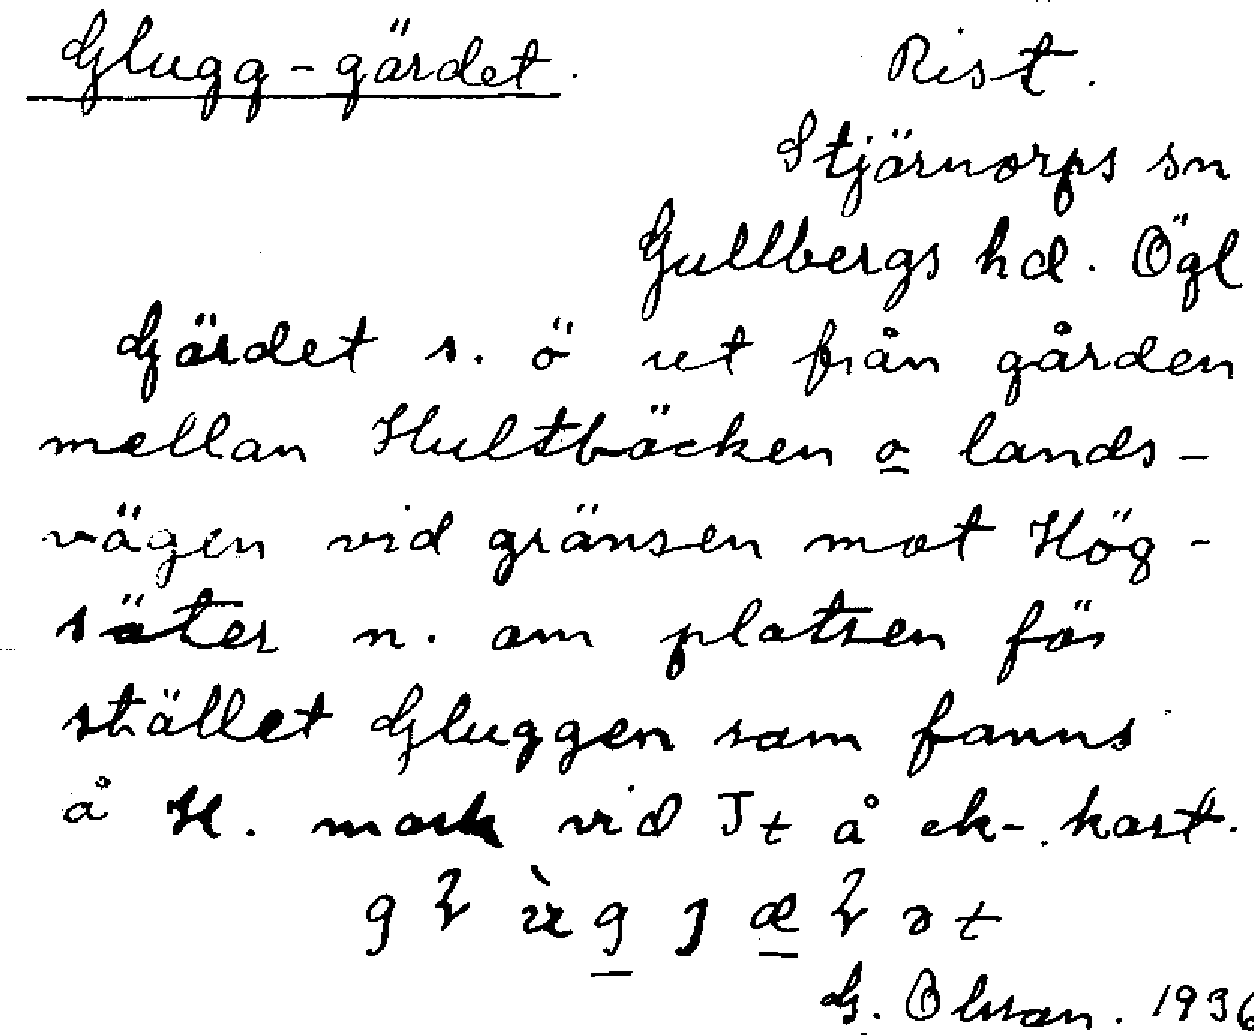 Glugg-gärdet. Rist.
Stjärnorps sn
Gullbergs hd. Ögl
Gärdet s. ö ut från gården
mellan Hultbäcken o lands-
vägen vid gränsen mot Hög-
säter n. om platsen för
stället Gluggen som fanns
å H. mark vid Jt å ek-kart.
G. Olsson. 1936